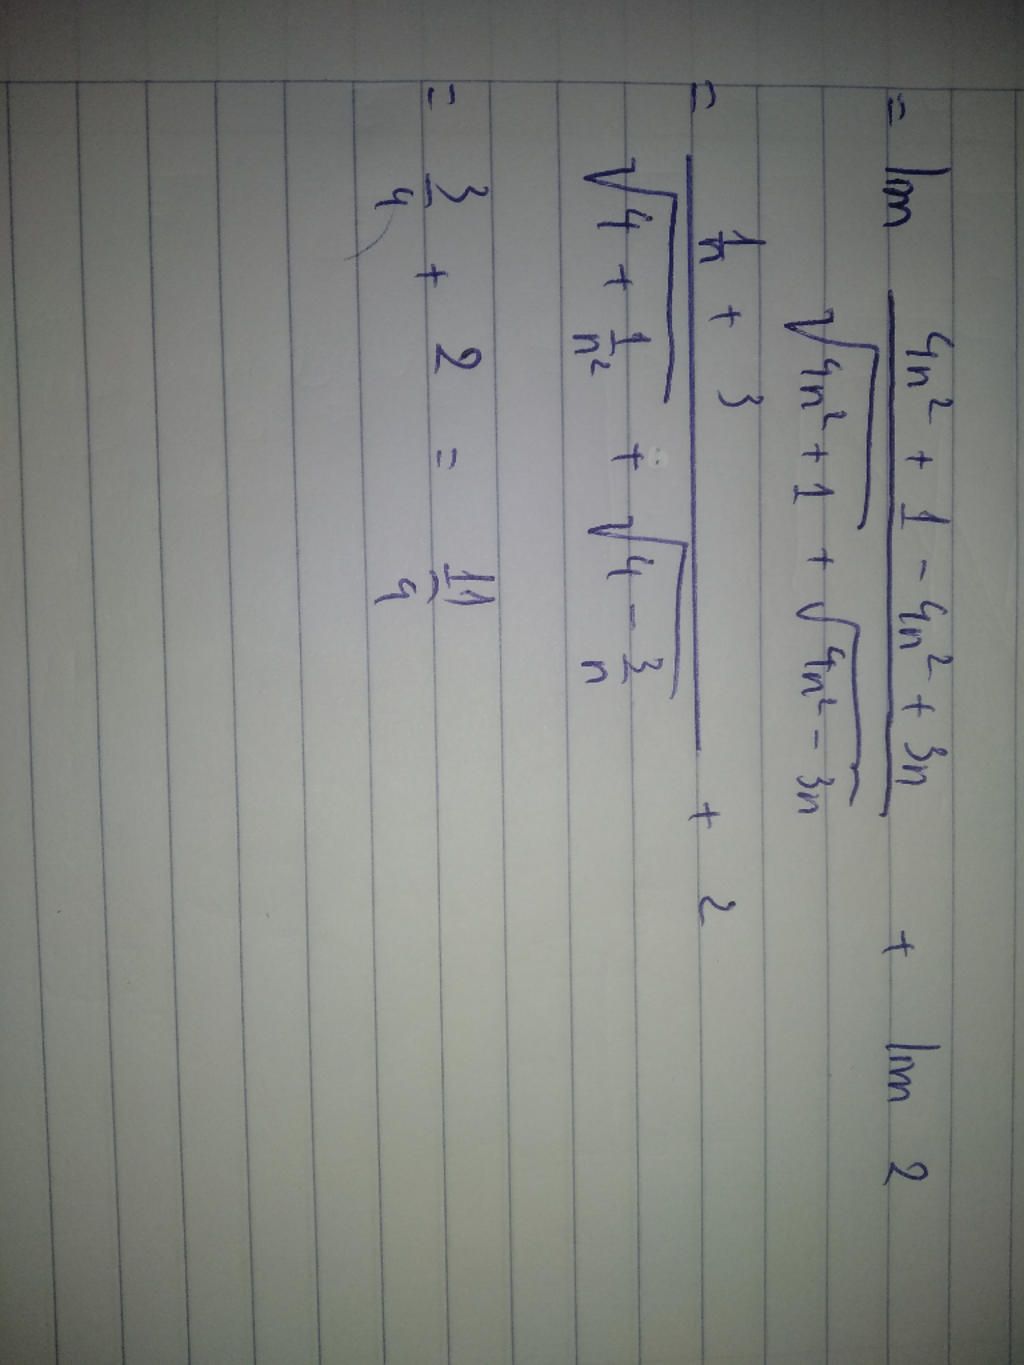 = lim (4n² + 1 - 4n² + 3n)/(√(4n² + 1) + √(4n² - 3n)) + lim 2
= (1/n + 3)/(√(4 + 1/n²) + √(4 - 3/n)) + 2
= 3/4 + 2 = 11/4